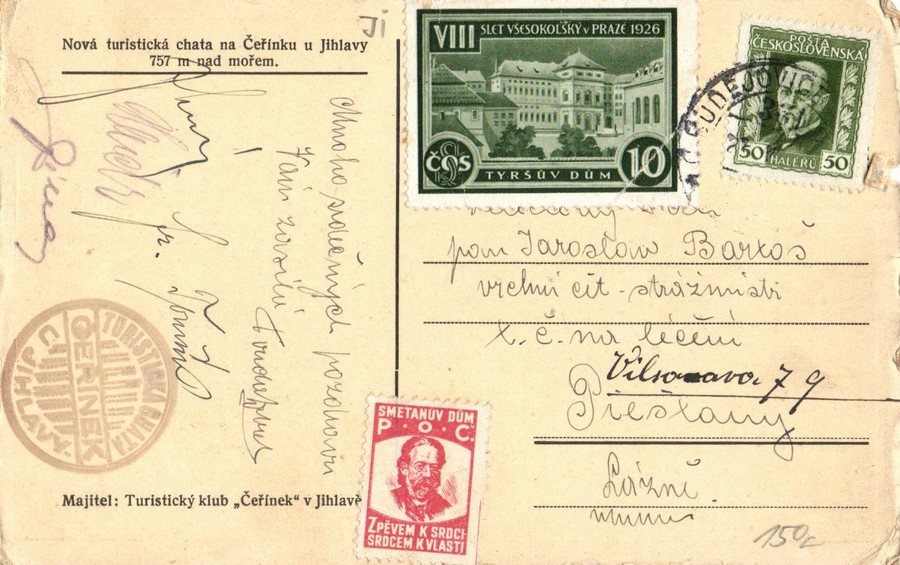 Nová turistická chata na Čeřínku u Jihlavy
757 m nad mořem.
Ji
VIII SLET VŠESOKOLSKÝ V PRAZE 1926
ČOS
TYRŠŮV DŮM
10
POŠTA
ČESKOSLOVENSKÁ
50 HALÉŘŮ 50
BUDĚJOVICE
Mnoho srdečných pozdravů
Vám zasílá
pan Jaroslav Bartoš
vrchní čet-strážmistr
t.č. na léčení
Vilsonova 79
Piešťany
Lázně
TURISTICKÁ CHATA
ČEŘÍNEK
U JIHLAVY
SMETANŮV DŮM
P.O.C.
ZPĚVEM K SRDCI
SRDCEM K VLASTI
Majitel: Turistický klub „Čeřínek" v Jihlavě
150